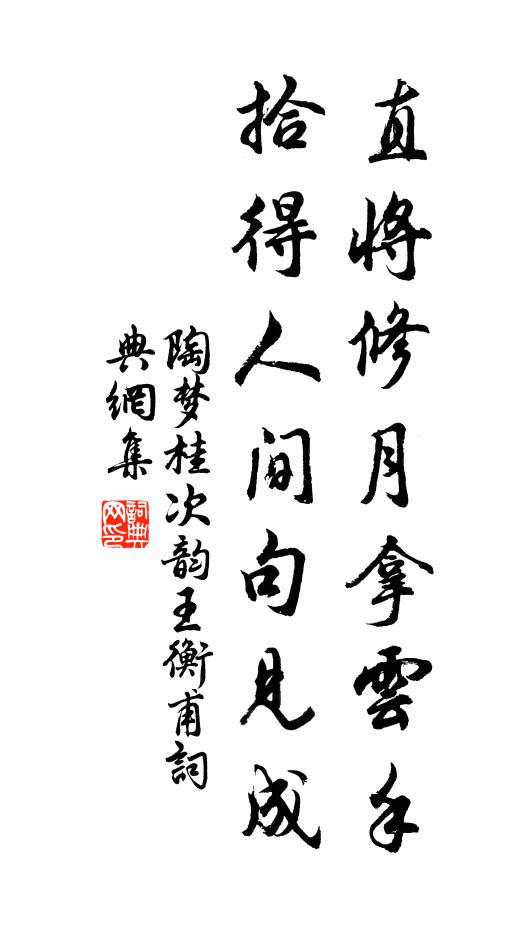 直將修月拿雲手
拾得人间句見成
陶梦桂次韵王衡甫詞
典網集
詞典
网印